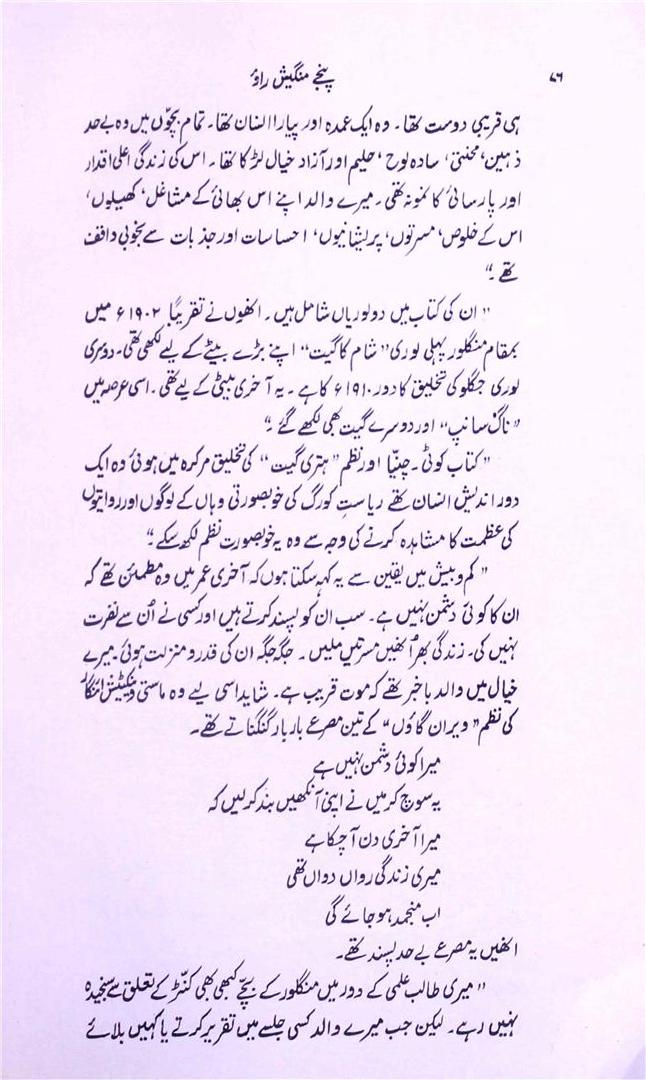 ۷۶
پنجے منگیش راؤ
ہی قریبی دوست تھا۔ وہ ایک عمدہ اور پیارا انسان تھا۔ تمام بچوں میں وہ بے حد
ذہین، محنتی، سادہ لوح، حلیم اور آزاد خیال لڑکا تھا۔ اس کی زندگی اعلیٰ اقدار
اور پارسائی کا نمونہ تھی۔ میرے والد اپنے اس بھائی کے مشاغل، کھیلوں،
اس کے خلوص، مسرتوں، پریشانیوں، احساسات اور جذبات سے بخوبی واقف
تھے۔"
"ان کی کتاب میں دو لوریاں شامل ہیں۔ انھوں نے تقریباً ۱۹۰۲ء میں
بمقام منگلور پہلی لوری "شام کا گیت" اپنے بڑے بیٹے کے لیے لکھی تھی۔ دوسری
لوری جگلو کی تخلیق کا دور ۱۹۱۰ء کا ہے۔ یہ آخری بیٹی کے لیے تھی۔ اسی عرصہ میں
"ناگ سانپ" اور دوسرے گیت بھی لکھے گئے۔"
"کتاب کوٹی۔ چنیّا اور نظم "ہتری گیت" کی تخلیق مرکرہ میں ہوئی وہ ایک
دور اندیش انسان تھے ریاستِ کورگ کی خوبصورتی وہاں کے لوگوں اور روایتوں
کی عظمت کا مشاہدہ کرنے کی وجہ سے وہ یہ خوبصورت نظم لکھ سکے۔"
"کم و بیش میں یقین سے یہ کہہ سکتا ہوں کہ آخری عمر میں وہ مطمئن تھے کہ
ان کا کوئی دشمن نہیں ہے۔ سب ان کو پسند کرتے ہیں اور کسی نے اُن سے نفرت
نہیں کی۔ زندگی بھر اُنھیں مسرتیں ملیں۔ جگہ جگہ ان کی قدر و منزلت ہوئی۔ میرے
خیال میں والد باخبر تھے کہ موت قریب ہے۔ شاید اسی لیے وہ ماستی وینکٹیش ائنگار
کی نظم "ویران گاؤں" کے تین مصرعے بار بار گنگناتے تھے۔
میرا کوئی دشمن نہیں ہے
یہ سوچ کر میں نے اپنی آنکھیں بند کر لیں کہ
میرا آخری دن آ چکا ہے
میری زندگی رواں دواں تھی
اب منجمد ہو جائے گی
انھیں یہ مصرعے بے حد پسند تھے۔
"میری طالب علمی کے دور میں منگلور کے بچے کبھی بھی کنّڑ کے تعلق سے سنجیدہ
نہیں رہے۔ لیکن جب میرے والد کسی جلسے میں تقریر کرتے یا کہیں بلائے